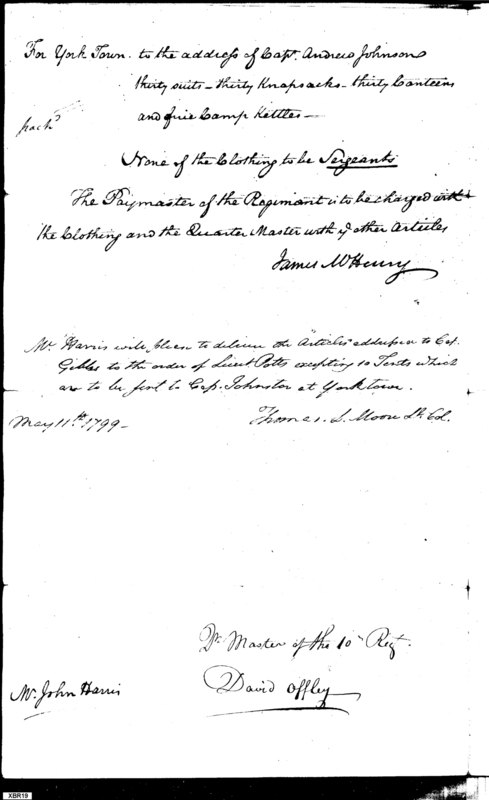 For York Town. to the address of Capt. Andrew Johnson
thirty suits - thirty Knapsacks - thirty Canteens
and five Camp Kettles -
packd
None of the Clothing to be Sergeants
The Paymaster of the Regiment is to be charged with
the Clothing and the Quarter Master with ye other Articles
James McHenry
Mr. Harris will please to deliver the Articles addressed to Cap.
Gibbs to the order of Lieut Potts excepting 10 Tents which
are to be sent to Cap. Johnston at York town.
May 11th. 1799 -
Thomas. L. Moore Lt. Col.
Qr. Master of the 10th Regt.
Mr. John Harris
David Offley
XBR19